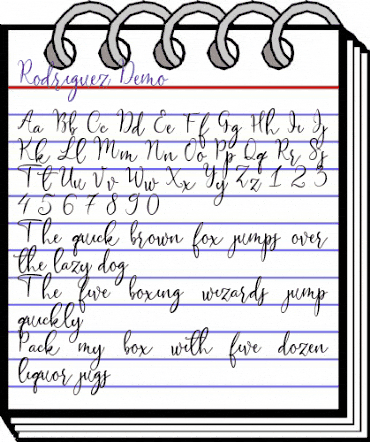 Rodriguez Demo
Aa Bb Cc Dd Ee Ff Gg Hh Ii Jj
Kk Ll Mm Nn Oo Pp Qq Rr Ss
Tt Uu Vv Ww Xx Yy Zz 1 2 3
4 5 6 7 8 9 0
The quick brown fox jumps over
the lazy dog
The five boxing wizards jump
quickly
Pack my box with five dozen
liquor jugs